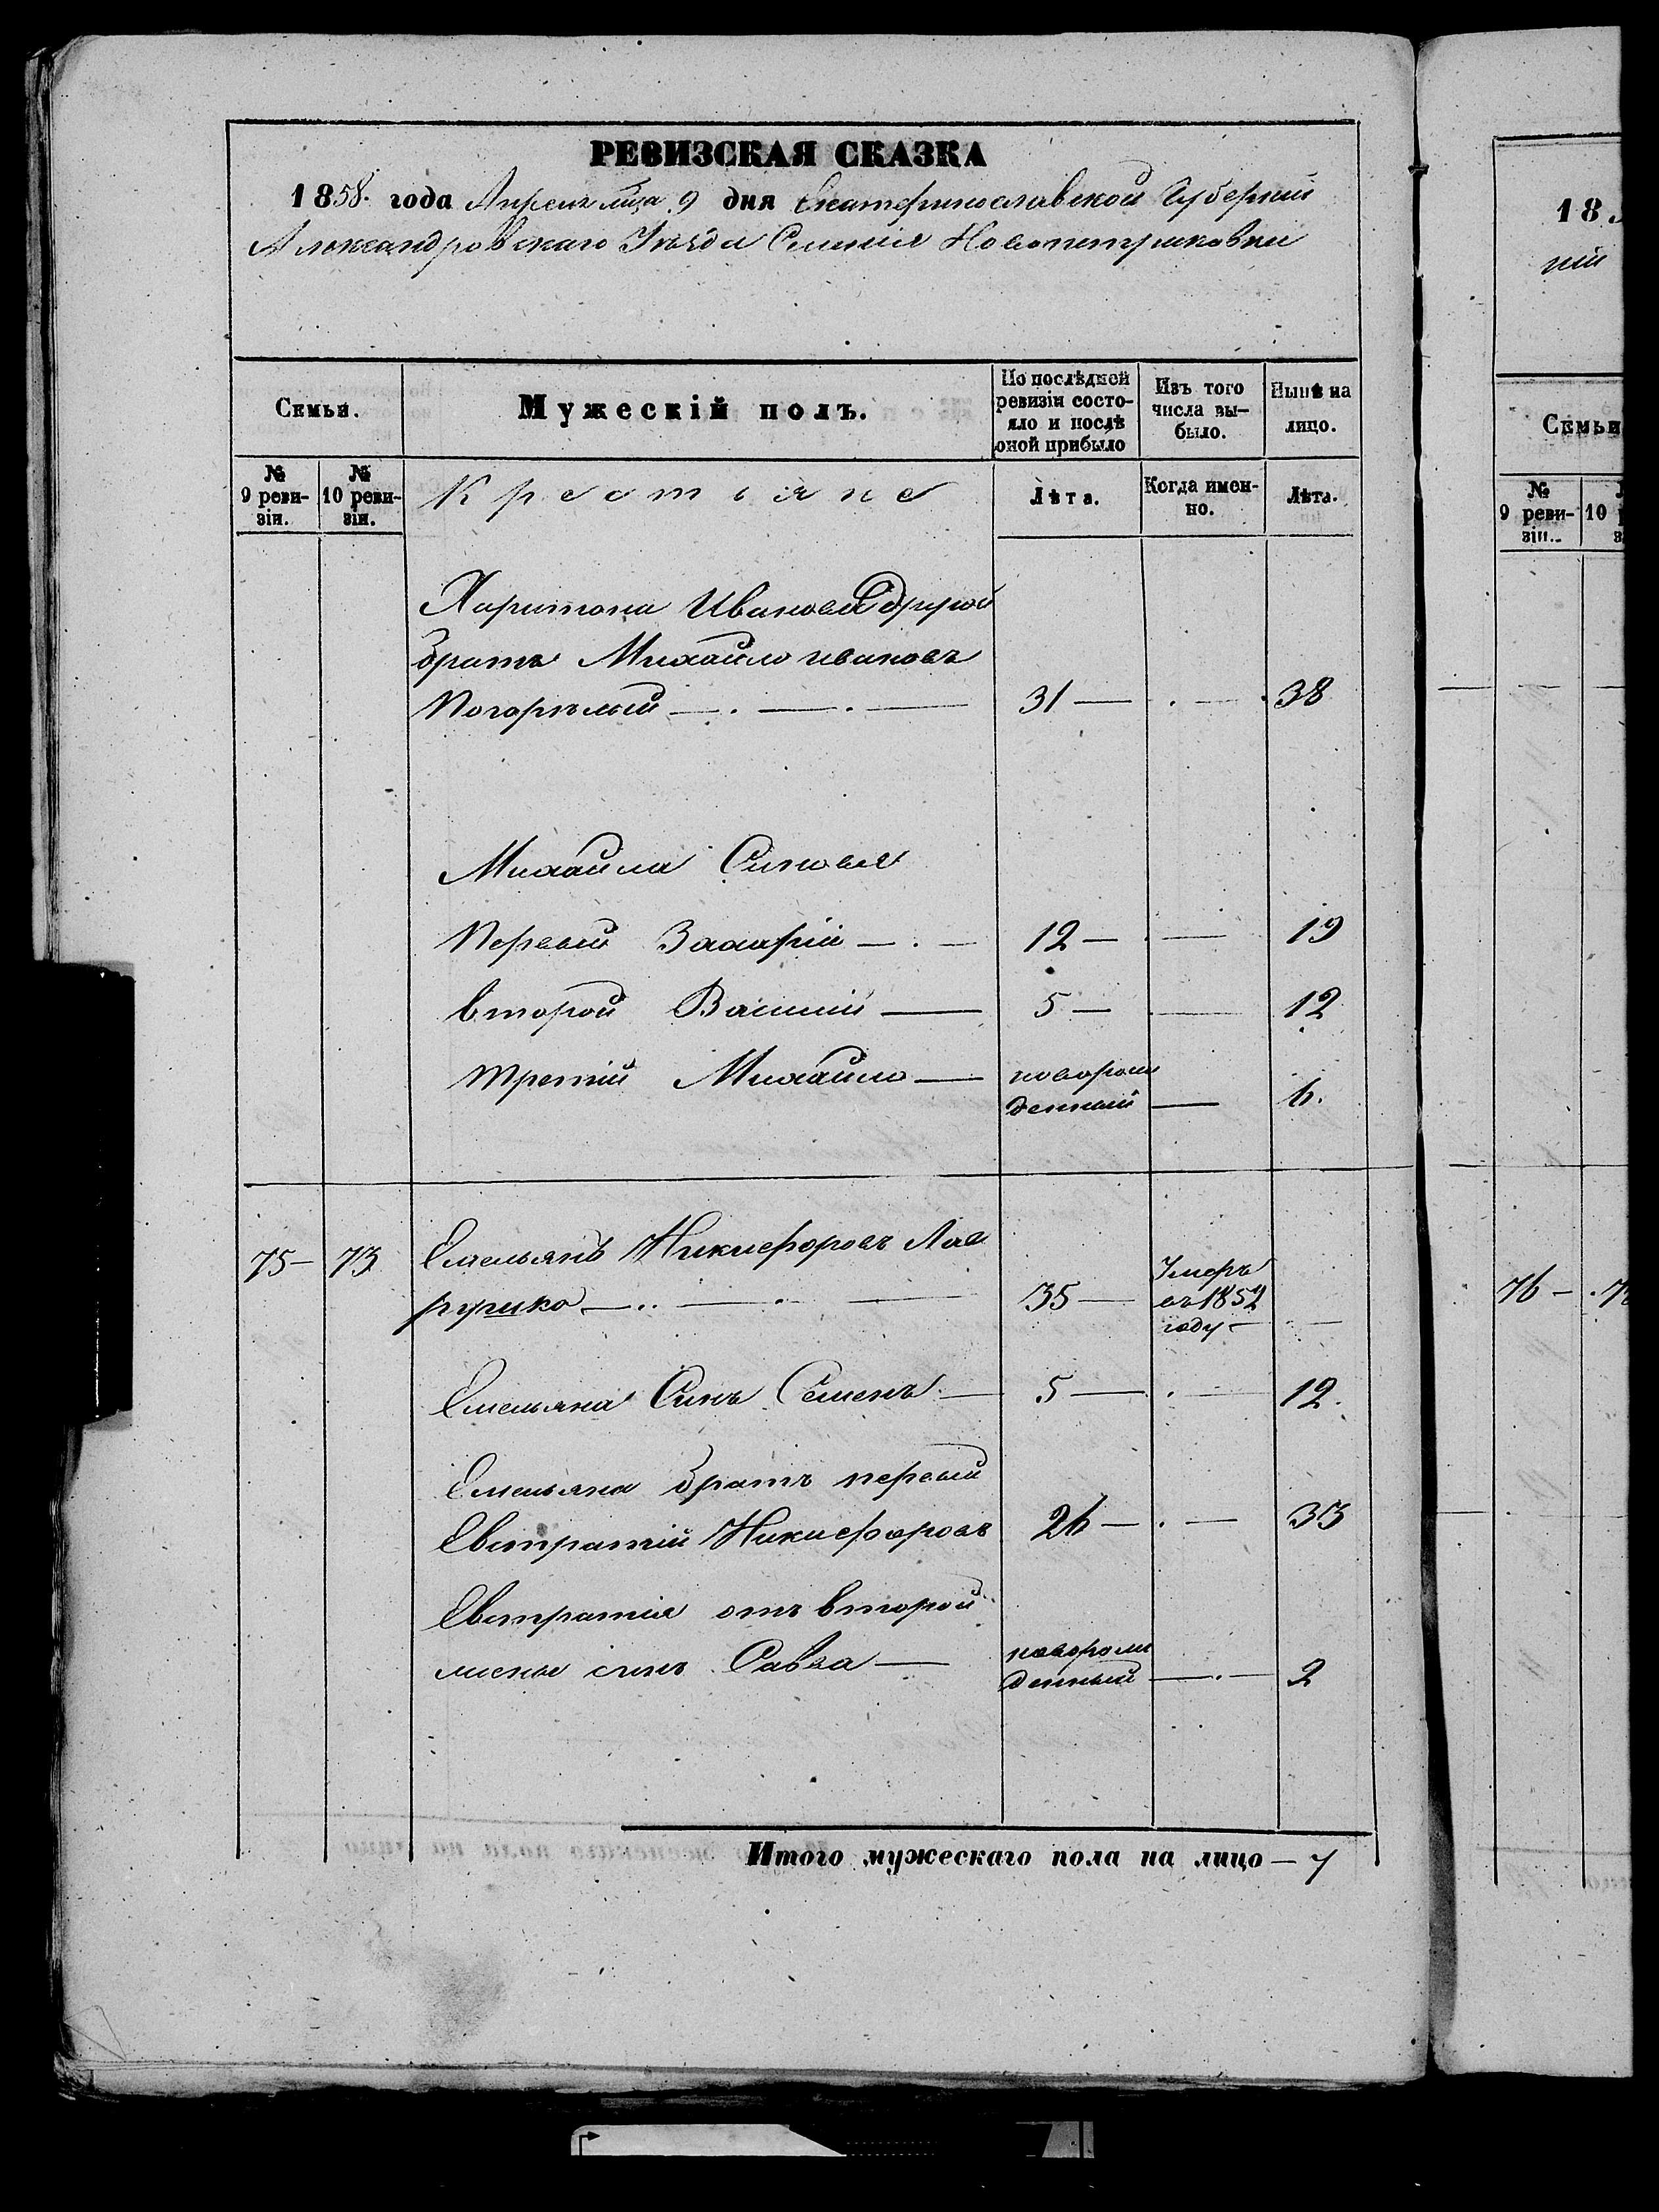 РЕВИЗСКАЯ СКАЗКА
1858. года Апреля мца 9 дня Екатеринославской Губернии
Александровскаго Уезда Селения Новопетриковки
Семьи.
Мужескій полъ.
По послѣдней ревизіи состо-
яло и послѣ
оной прибыло
Изъ того
числа вы-
было.
Нынѣ на
лицо.
№ 9 реви-
зіи.
№ 10 реви-
зіи.
Крестяне
Лѣта.
Когда имен-
но.
Лѣта.
Харитона Иванова другой
братъ Михайло ивановъ
Погорѣлый — . — . — 31 — . — 38
Михайла Синовья
Первый Захарій — . — 12 — — 19
второй Василий — 5 — — 12
третій Михайло — новорож
денный — 6.
75 — 73 Емельянъ Никифоровъ Лав
рушко — .. — . — 35 — Умеръ
въ 1852
году —
Емельяна Синъ Семенъ — 5 — . — 12.
Емельяна братъ первый
Евстратій Никифоровъ 26 — . — 33
Евстратія отъ второй
жены синъ Савва — новорож
денный — . — 2
Итого мужескаго пола на лицо — 7
18
ніи
Семьи
№
9 реви-
зіи.
10
76 —